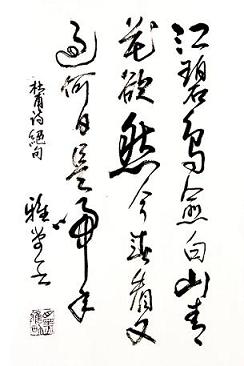 江碧鸟愈白山青
花欲然今春看又
过何日是归年
杜甫诗絕句
雅